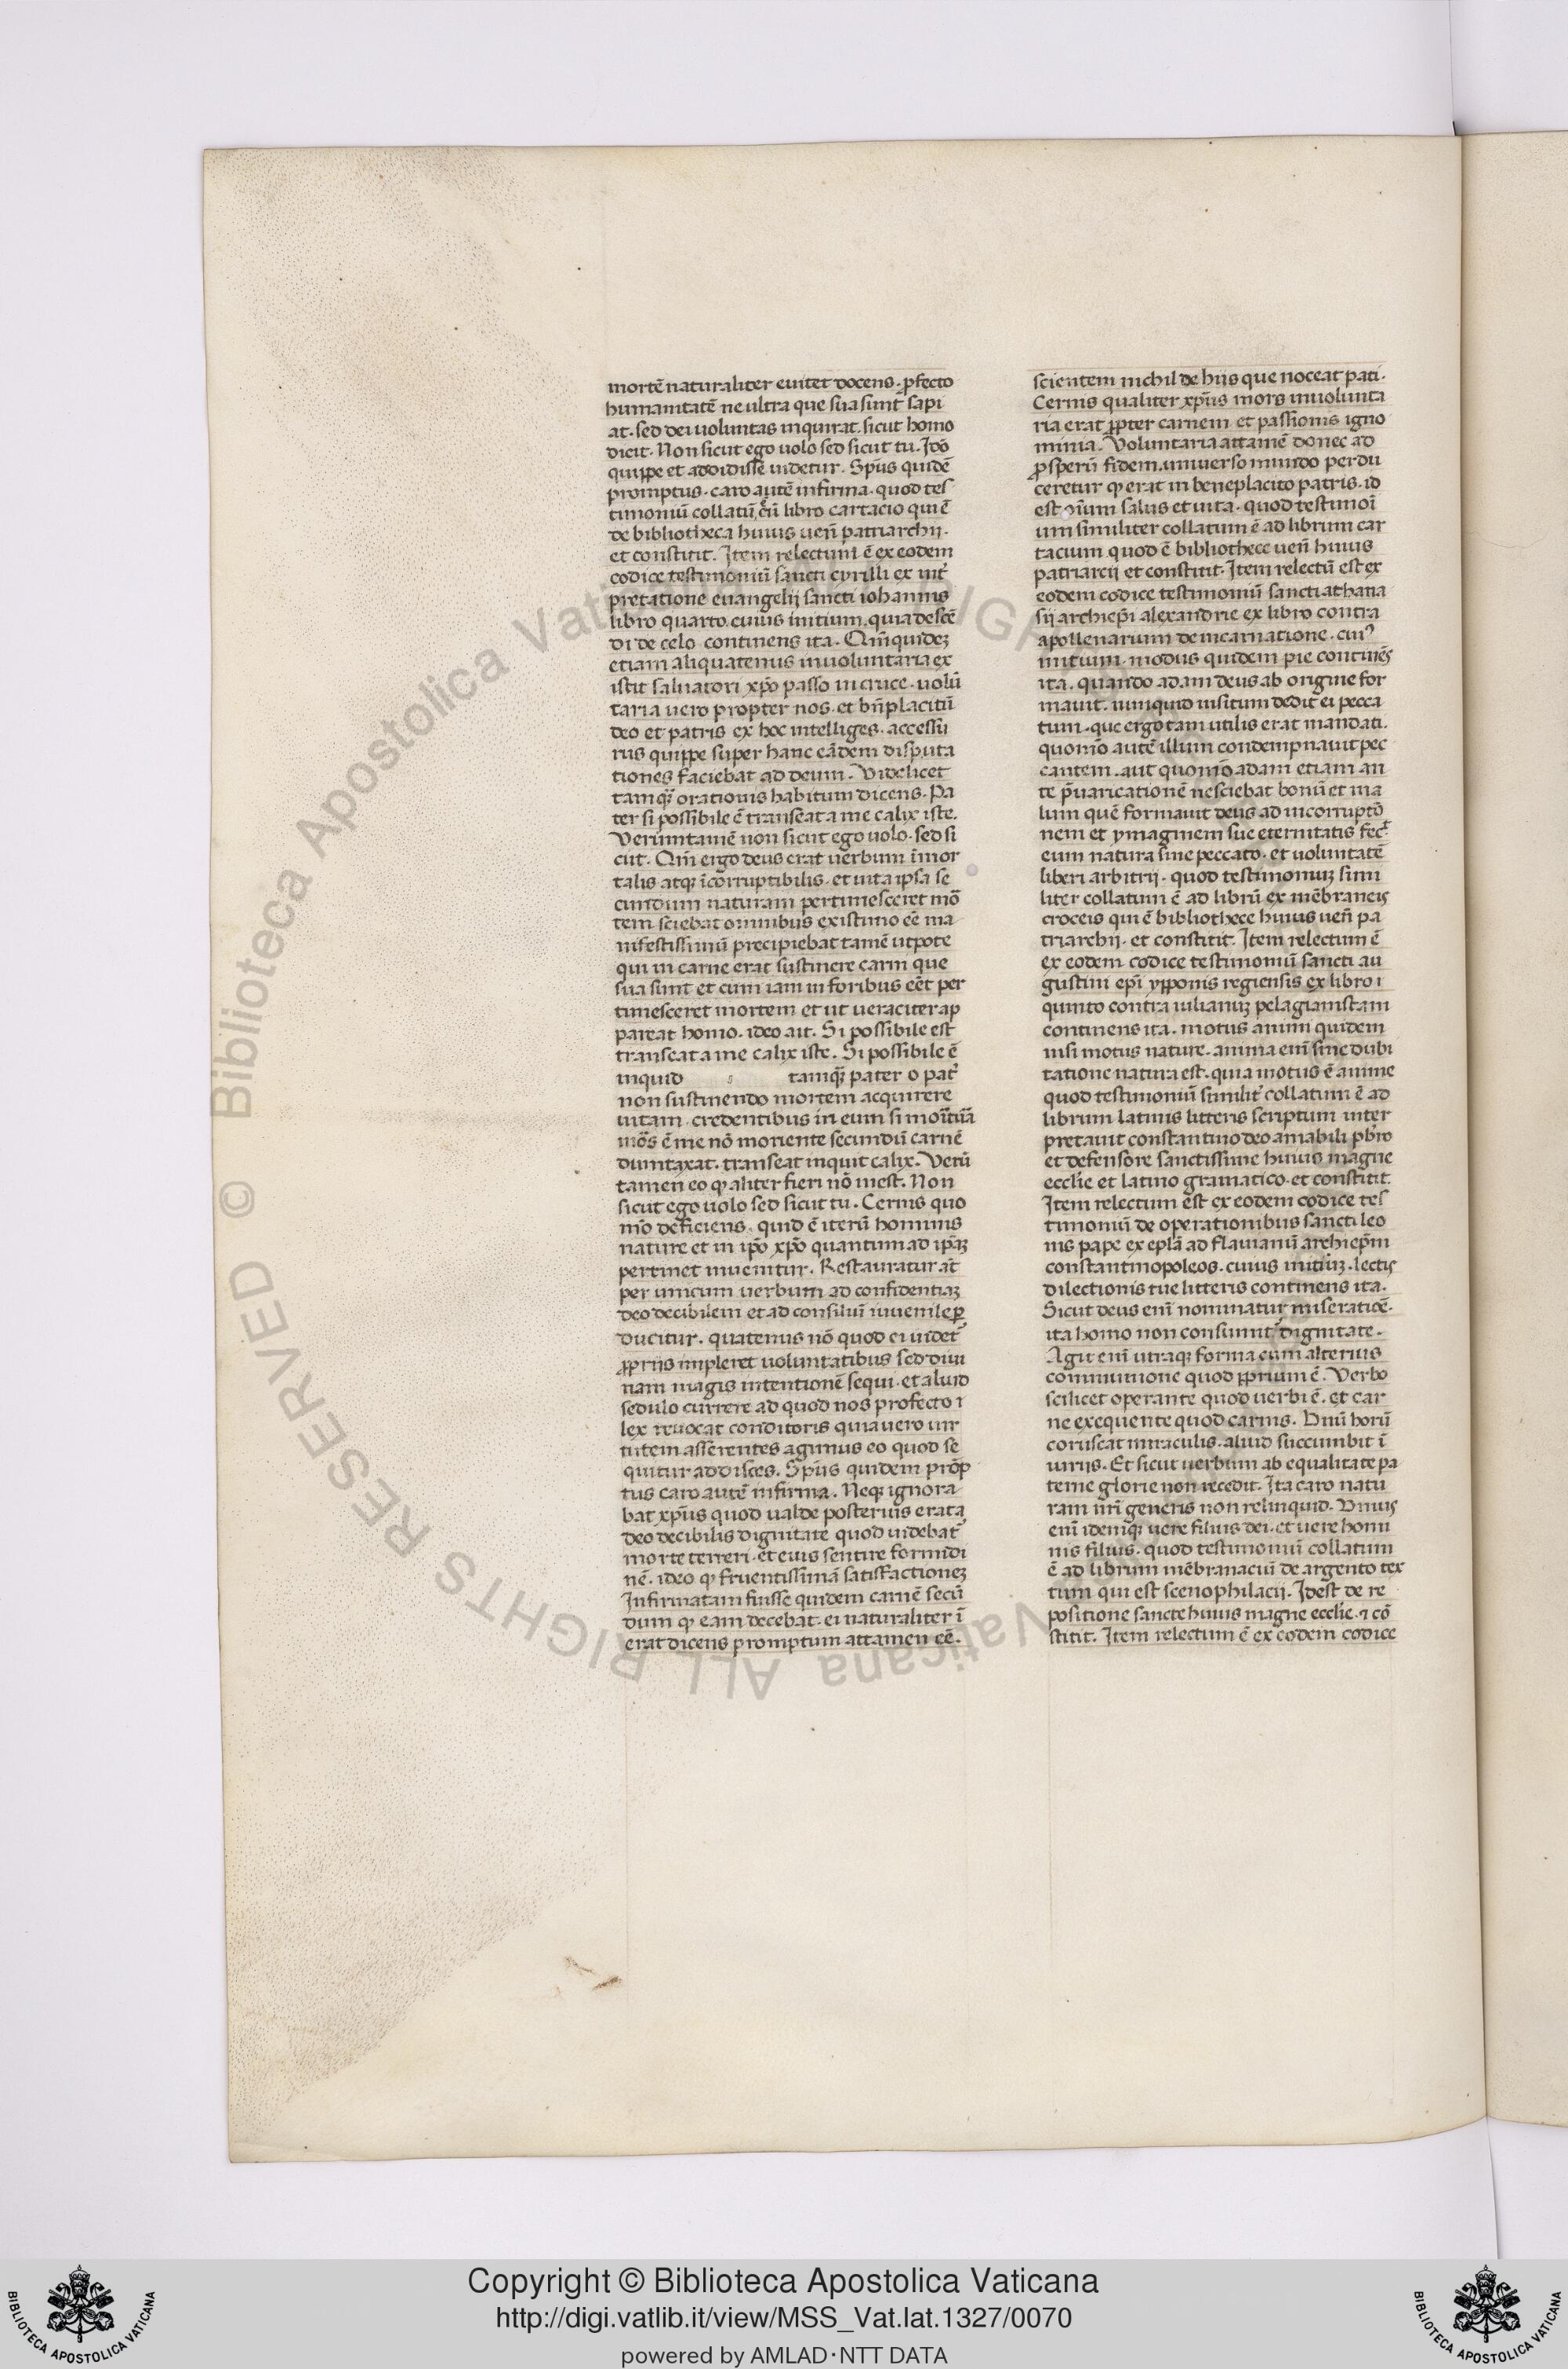 mortē naturaliter euitet docens. ꝓfecto
humanitatē ne ultra que sua sunt sapi
at. sed dei uoluntas inquirat. sicut homo
dicit. Non sicut ego uolo sed sicut tu. Jdō
quippe et addidisse uidetur. Spūs quidē
promptus. caro autē infirma. quod tes
timoniū collatū cū libro cartacio qui ē
de bibliotheca huius ueñ patriarchij.
et constitit. Item relectum ē ex eodem
codice testimoniū sancti cyrilli ex int̄
pretatione euangelij sancti iohannis
libro quarto cuius initium. quia descē
di de celo. continens ita. Qm̄ quidez
etiam aliquatenus inuoluntaria ex
istit saluatori xpō passo in cruce. uolū
taria uero propter nos. et bn̄placitū
deo et patris ex hoc intelliges. accessu
rus quippe super hanc eādem disputa
tiones faciebat ad deum. Videlicet
tamqᷓ orationis habitum dicens. Pa
ter si possibile ē transeat a me calix iste.
Verumtamē non sicut ego uolo. sed si
cut. Qm̄ ergo deus erat uerbum īmor
talis atqꝫ īcorruptibilis. et uita ipsa se
cundum naturam pertimesceret mō
tem sciebat omnibus existimo eē ma
nifestissimū precipiebat tamē utpote
qui in carne erat sustinere carni que
sua sunt et cum iam in foribus eēt per
timesceret mortem et ut ueraciter ap
pareat homo. ideo ait. Si possibile est
transeat a me calix iste. Si possibile ē
inquid tamqᷓ pater o pat̄
non sustinendo mortem acquirere
uitam. credentibus in eum si
mōs ē me nō moriente secundū carnē
dumtaxat. transeat inquit calix. Verū
tamen eo ꝙ aliter fieri nō inest. Non
sicut ego uolo sed sicut tu. Cernis quo
mō deficiens. quid ē iterū hominis
nature et in ipō xpō quantum ad ipāꝫ
pertinet inuenitur. Restauratur at̄
per unicum uerbum ad confidentiaꝫ
deo decibilem et ad consiluī iuuenile ꝑ
ducitur. quatenus nō quod ei uidet̄
ꝓpriis impleret uoluntatibus sed diui
nam magis intentionē sequi. et aliud
sedulo currere ad quod nos profecto ⁊
lex reuocat conditoris quia uero uir
tutem asserentes agimus eo quod se
quitur addisces. Spūs quidem prōp
tus caro autē infirma. Neqꝫ ignora
bat xpūs quod ualde posterius erat a
deo decibilis dignitate quod uidebat̄
morte terreri. et eius sentire formidi
nē. ideo ꝙ fruentissimā satisfactioneꝫ
Infirmatam fuisse quidem carnē secū
dum ꝙ eam decebat. ei naturaliter ī
erat dicens promptum attamen eē.
scientem nichil de hiis que noceat pati.
Cernis qualiter xpūs mors inuolunta
ria erat ꝓpter carnem et passionis igno
minia. Voluntaria attamē donec ad
ꝓsperū fidem. uniuerso mundo perdu
ceretur ꝙ erat in beneplacito patris. id
est oīum salus et uita. quod testimoī
um similiter collatum ē ad librum car
tacium quod ē bibliothece ueñ huius
patriarcij et constitit. Item relectū est ex
eodem codice testimoniū sancti athana
sij archiepī alexandrie ex libro contra
apollenarium de incarnatione. cuiꝰ
initium. modus quidem pie continēs
ita. quando adam deus ab origine for
mauit. nunquid insitum dedit ei pecca
tum. que ergo tam utilis erat mandati.
quomō autē illum condempnauit pec
cantem. aut quomō adam etiam an
te p̄uaricationē nesciebat bonū et ma
lum quē formauit deus ad incorruptō
nem et ymaginem sue eternitatis fec̄
eum natura sine peccato. et uoluntatē
liberi arbitrij. quod testimoniuꝫ simi
liter collatum ē ad librū ex mēbraneis
croceis qui ē bibliothece huius ueñ pa
triarchij. et constitit. Item relectum ē
ex eodem codice testimoniū sancti au
gustini epī ypponis regiensis ex libro ⁊
quinto contra iulianuꝫ pelagianistam
continens ita. motus animi quidem
nisi motus nature. anima enī sine dubi
tatione natura est. quia motus ē anime
quod testimoniū similit̄ collatum ē ad
librum latinis litteris scriptum inter
pretauit constantino deo amabili pb̄ro
et defensore sanctissime huius magne
eccl̄ie et latino gramatico. et constitit.
Item relectum est ex eodem codice tes
timoniū de operationibus sancti leo
nis pape ex eplā ad flauianū archiep̄m
constantinopoleos. cuius initiuꝫ. lectis
dilectionis tue litteris continens ita.
Sicut deus enī nominatur miseratiōē.
ita homo non consumit̄ dignitate.
Agit enī utraqꝫ forma cum alterius
communione quod ꝓprium ē. Verbo
scilicet operante quod uerbi ē. et car
ne exequente quod carnis. Vnū horū
coruscat miraculis. aliud succumbit ī
iuriis. Et sicut uerbum ab equalitate pa
terne glorie non recedit. Ita caro natu
ram nr̄i generis non relinquid. Vnus
enī idemqꝫ uere filius dei. et uere homi
nis filius. quod testimoniū collatum
ē ad librum mēbranaciū de argento tex
tum qui est scenophilacij. Idest de re
positione sancte huius magne eccl̄ie. ⁊ cō
stitit. Item relectum ē ex eodem codice
© Biblioteca Apostolica Vaticana ALL RIGHTS RESERVED
Copyright © Biblioteca Apostolica Vaticana
http://digi.vatlib.it/view/MSS_Vat.lat.1327/0070
powered by AMLAD·NTT DATA
BIBLIOTECA APOSTOLICA VATICANA
BIBLIOTECA APOSTOLICA VATICANA